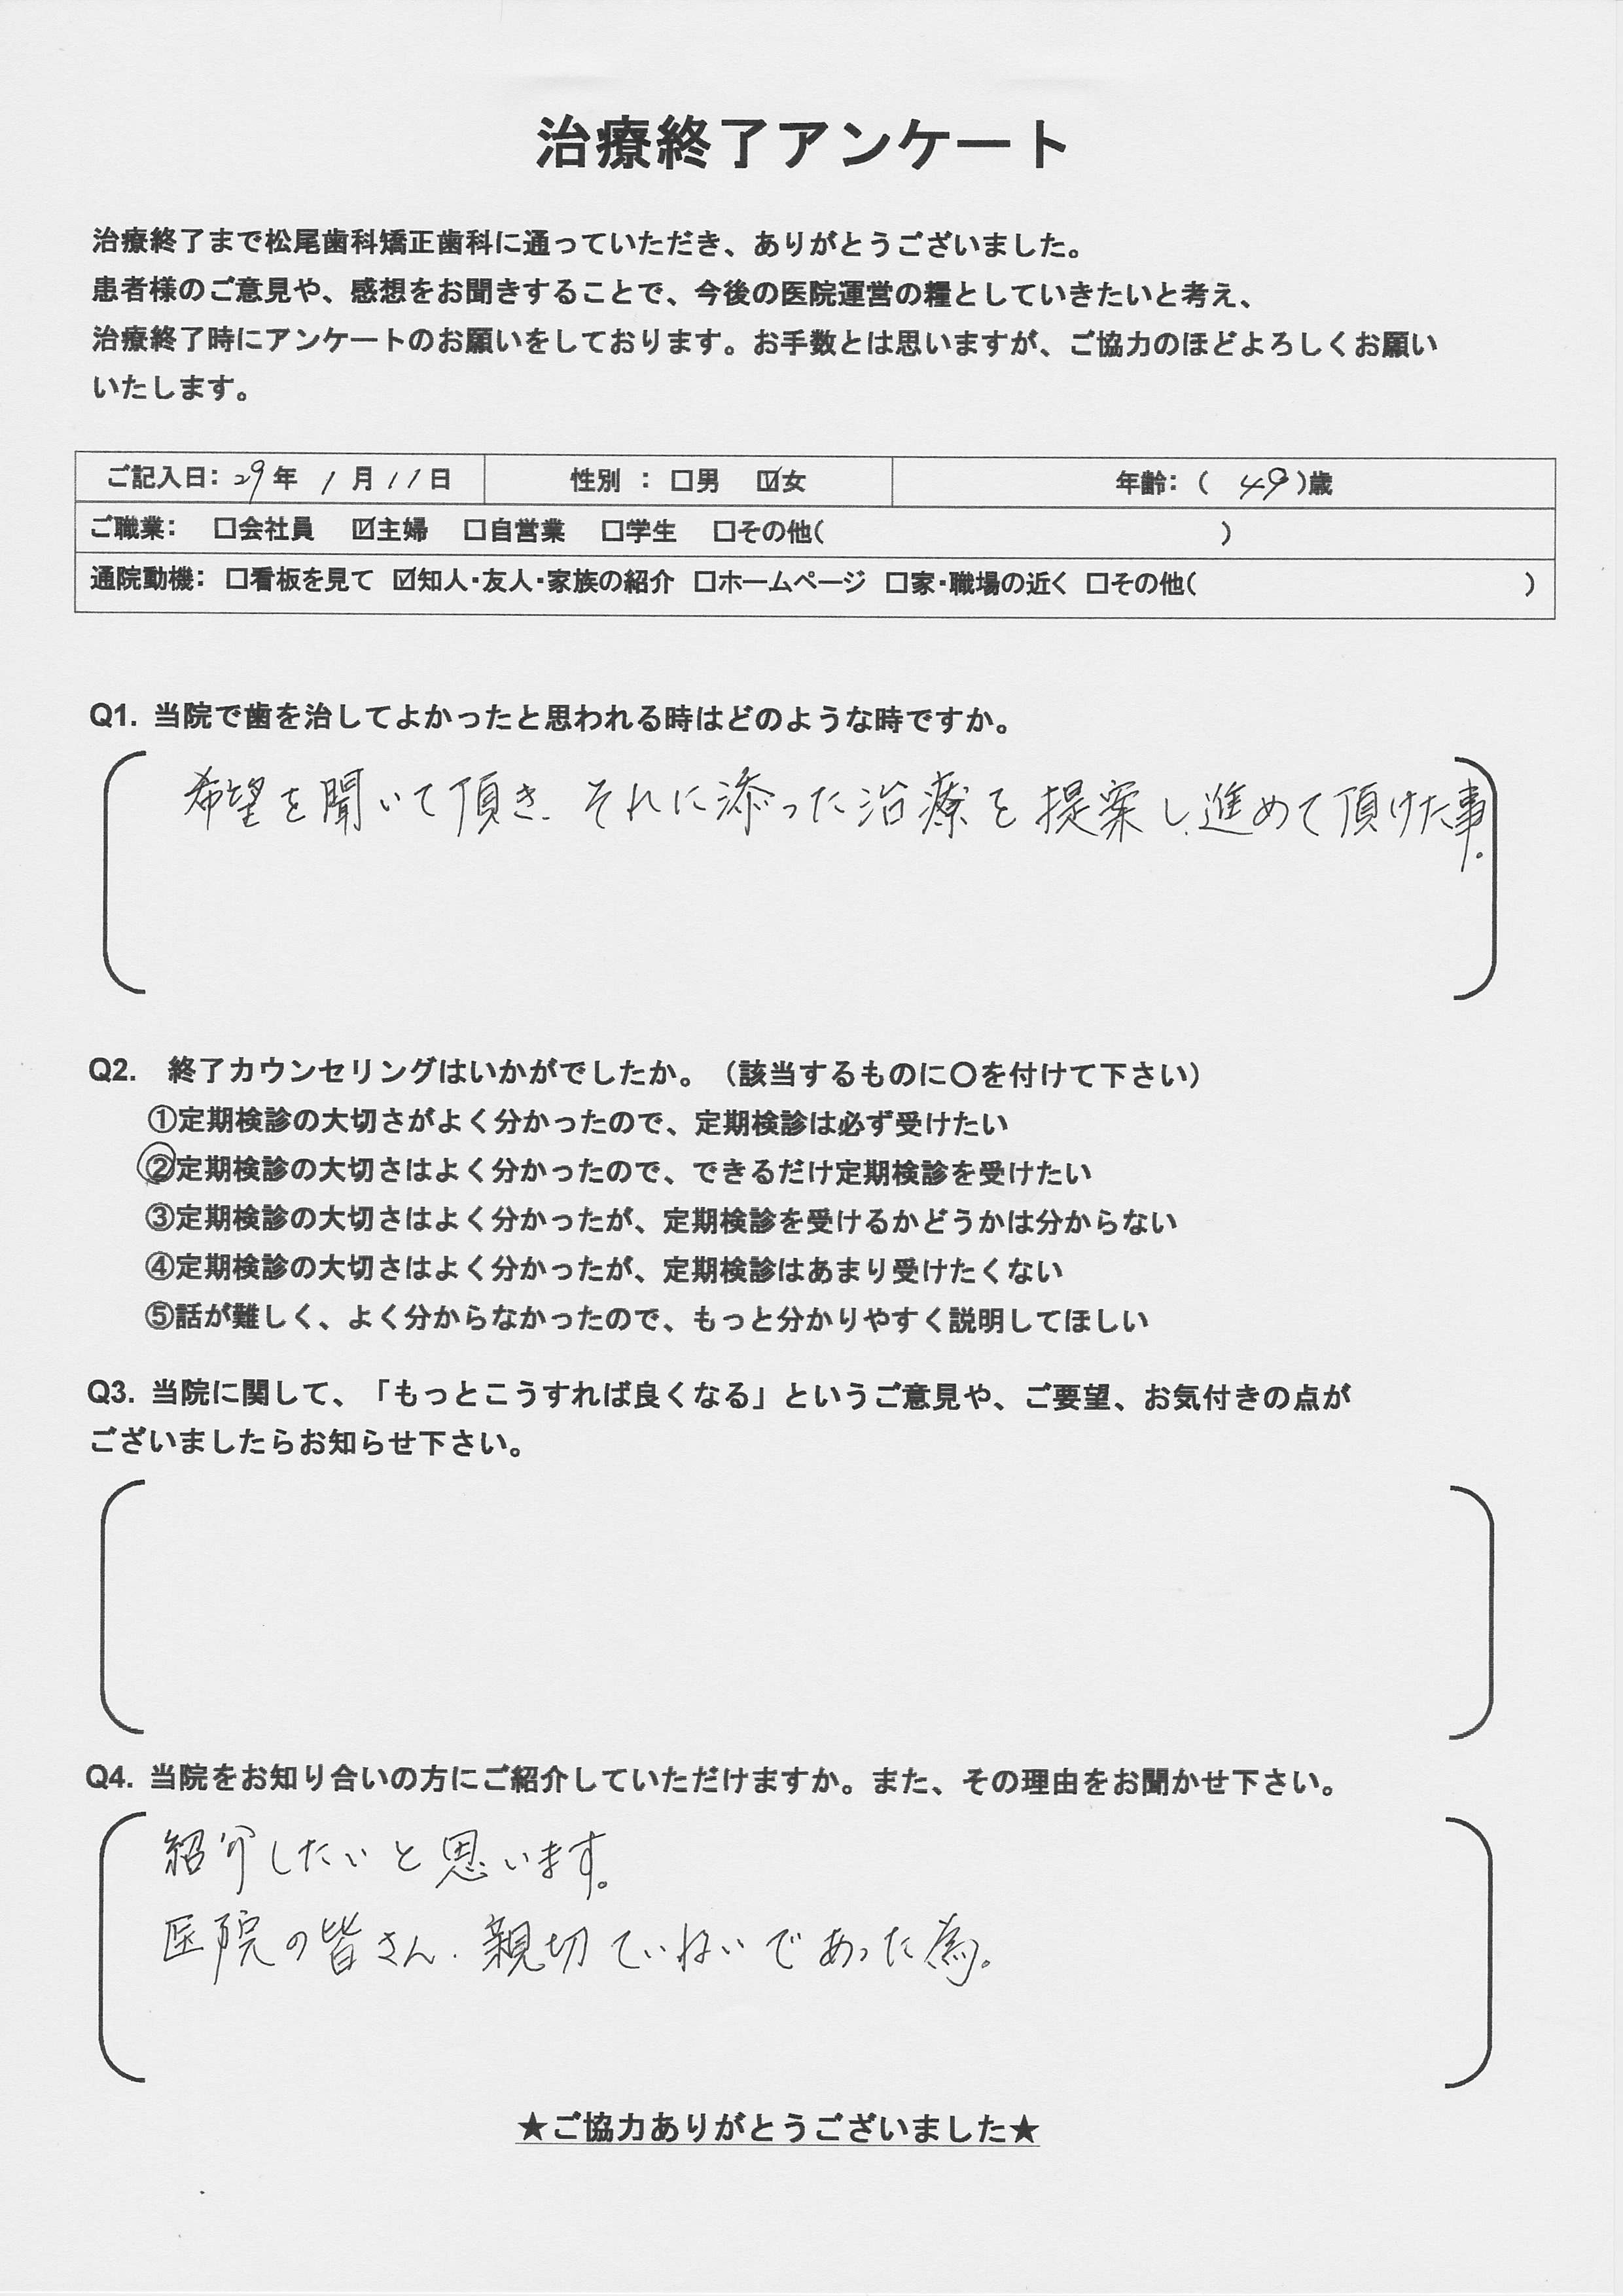 治療終了アンケート
治療終了まで松尾歯科矯正歯科に通っていただき、ありがとうございました。
患者様のご意見や、感想をお聞きすることで、今後の医院運営の糧としていきたいと考え、
治療終了時にアンケートのお願いをしております。お手数とは思いますが、ご協力のほどよろしくお願い
いたします。
ご記入日：29年 1月11日 性別 ： □男 ☑女 年齢：（ 49 ）歳
ご職業： □会社員 ☑主婦 □自営業 □学生 □その他（ ）
通院動機： □看板を見て ☑知人・友人・家族の紹介 □ホームページ □家・職場の近く □その他（ ）
Q1. 当院で歯を治してよかったと思われる時はどのような時ですか。
希望を聞いて頂き、それに添った治療を提案し、進めて頂けた事。
Q2. 終了カウンセリングはいかがでしたか。（該当するものに〇を付けて下さい）
①定期検診の大切さがよく分かったので、定期検診は必ず受けたい
②定期検診の大切さはよく分かったので、できるだけ定期検診を受けたい
③定期検診の大切さはよく分かったが、定期検診を受けるかどうかは分からない
④定期検診の大切さはよく分かったが、定期検診はあまり受けたくない
⑤話が難しく、よく分からなかったので、もっと分かりやすく説明してほしい
Q3. 当院に関して、「もっとこうすれば良くなる」というご意見や、ご要望、お気付きの点が
ございましたらお知らせ下さい。
Q4. 当院をお知り合いの方にご紹介していただけますか。また、その理由をお聞かせ下さい。
紹介したいと思います。
医院の皆さん、親切ていねいであった為。
★ご協力ありがとうございました★